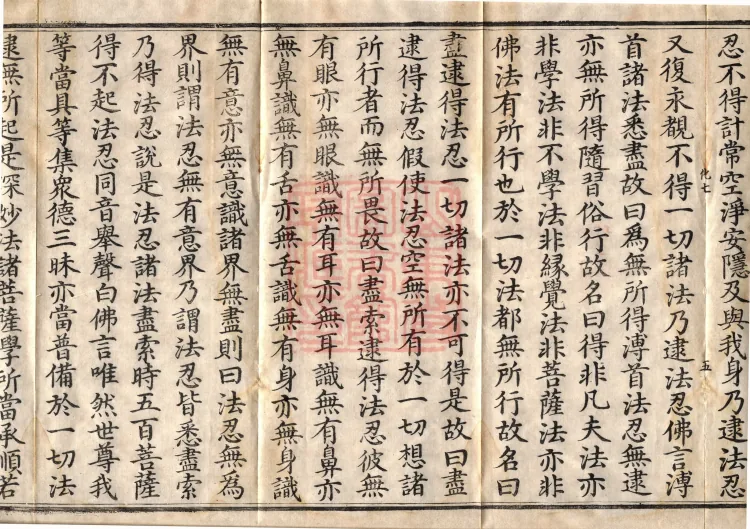 忍不得計常空淨安隱及與我身乃逮法忍
化七 五
又復永覩不得一切諸法乃逮法忍佛言溥
首諸法悉盡故曰爲無所得溥首法忍無逮
亦無所得隨習俗行故名曰得非凡夫法亦
非學法非不學法非緣覺法非菩薩法亦非
佛法有所行也於一切法都無所行故名曰
盡逮得法忍一切諸法亦不可得是故曰盡
逮得法忍假使法忍空無所有於一切想諸
所行者而無所畏故曰盡索逮得法忍彼無
有眼亦無眼識無有耳亦無耳識無有鼻亦
無鼻識無有舌亦無舌識無有身亦無身識
無有意亦無意識諸界無盡則曰法忍無為
界則謂法忍無有意界乃謂法忍皆悉盡索
乃得法忍說是法忍諸法盡索時五百菩薩
得不起法忍同音舉聲白佛言唯然世尊我
等當具等集衆德三昧亦當普備於一切法
逮無所起是深妙法諸菩薩學所當承順若